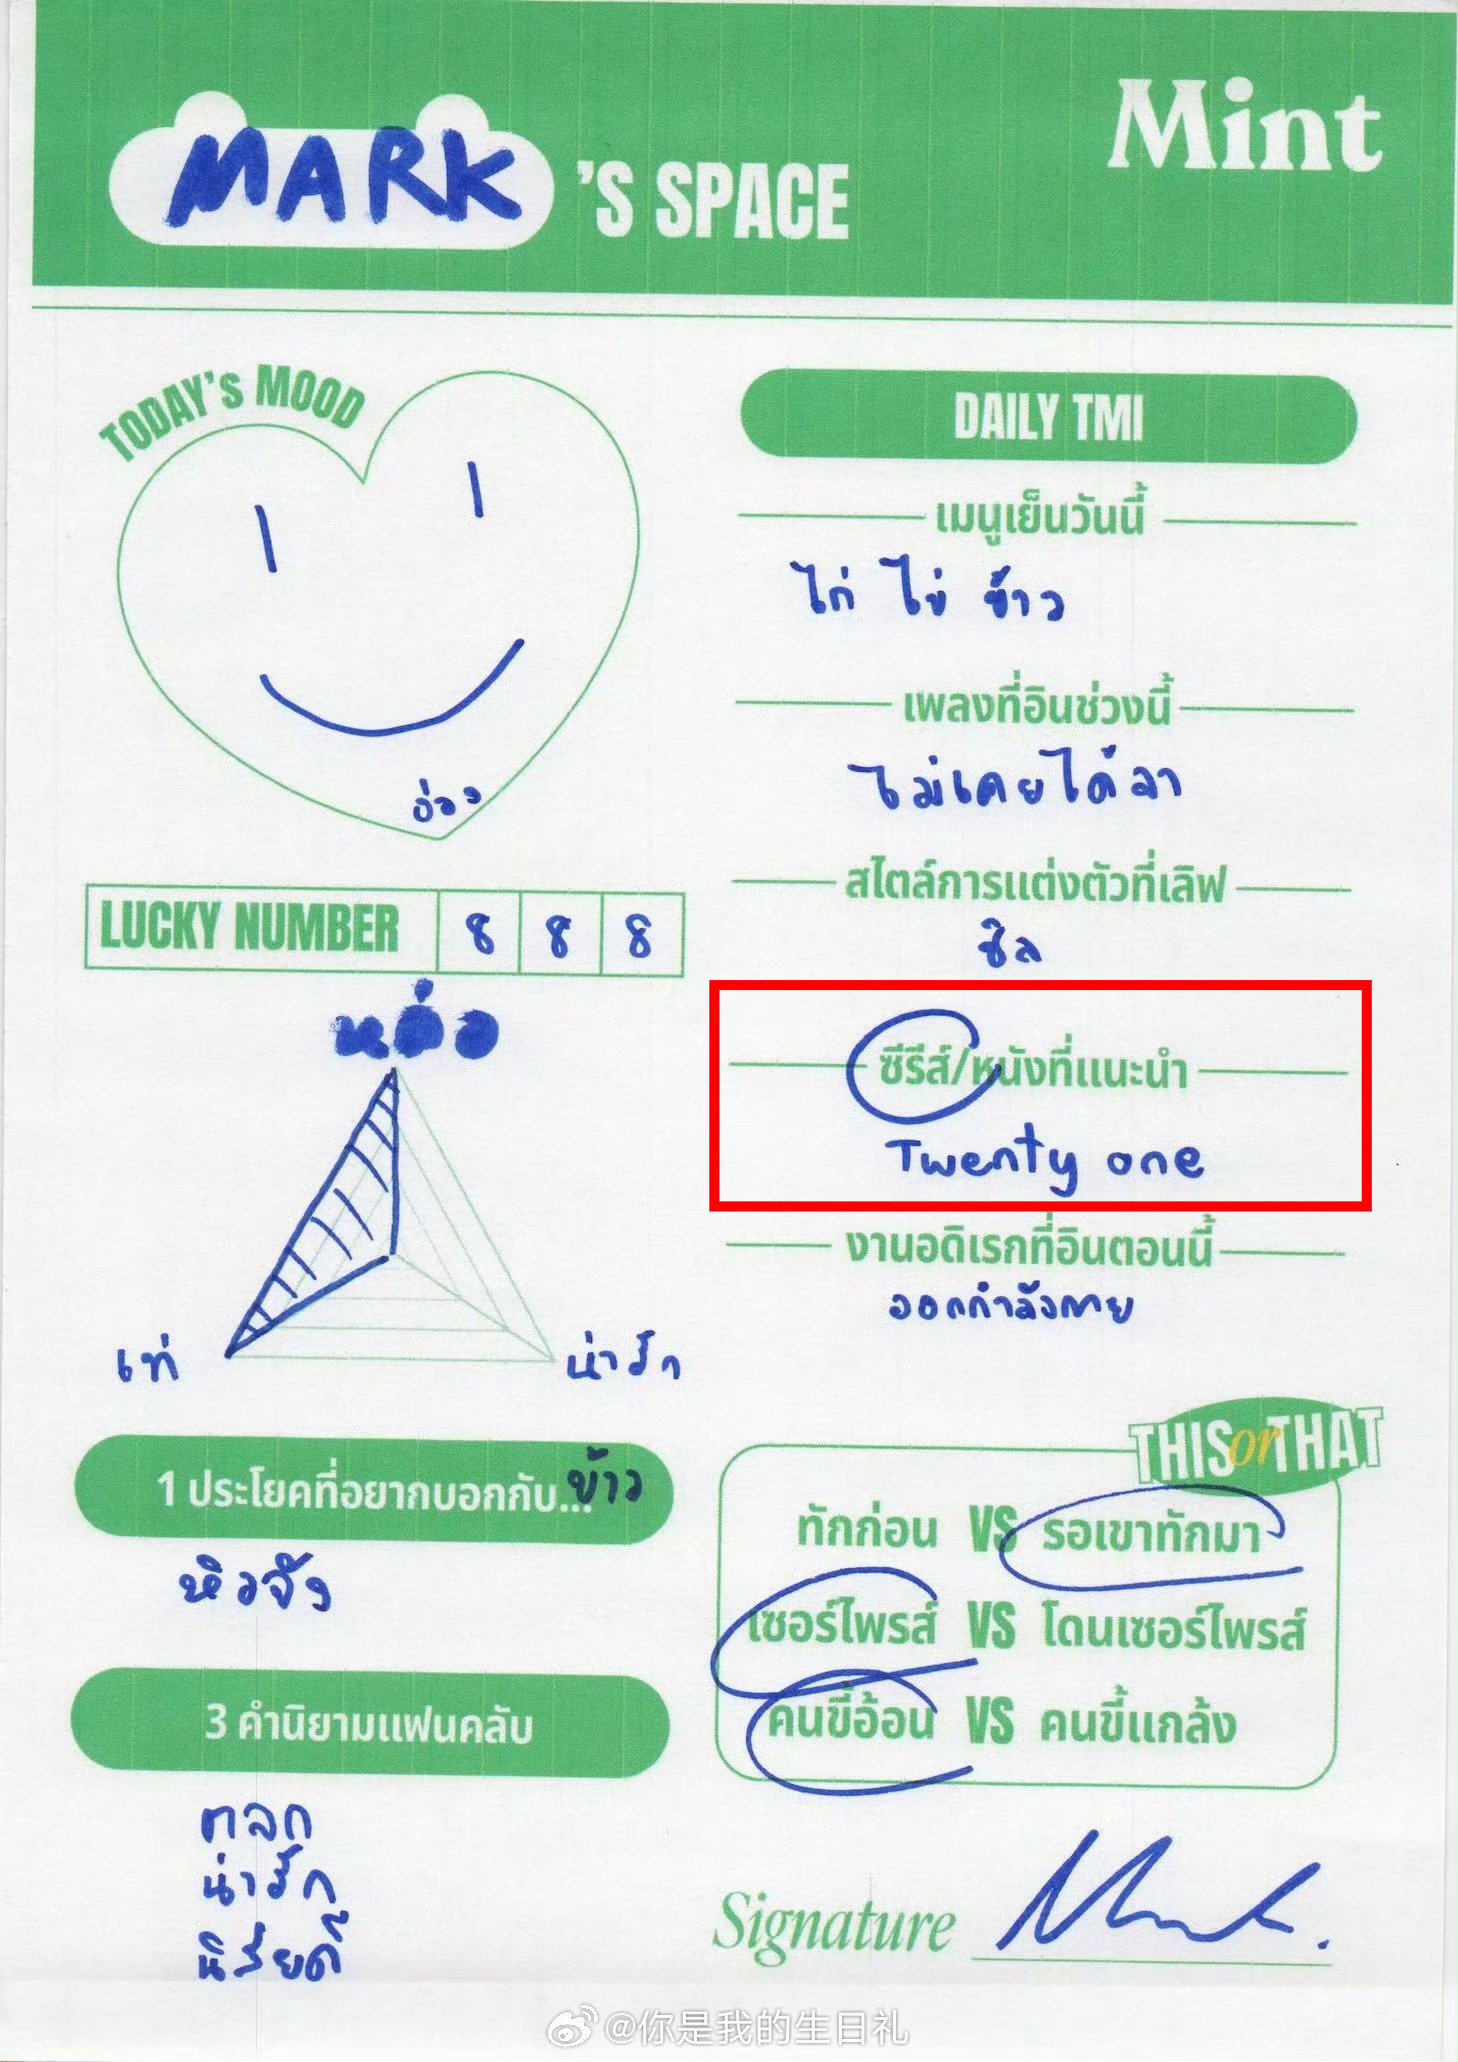 MARK'S SPACE
Mint
TODAY'S MOOD
ง่วง
LUCKY NUMBER 8 8 8
หล่อ
เท่
น่ารัก
1 ประโยคที่อยากบอกกับ...ข้าว
หิวจัง
3 คำนิยามแฟนคลับ
ตลก
น่ารัก
นิสัยดี
DAILY TMI
เมนูเย็นวันนี้
ไก่ ไข่ ข้าว
เพลงที่อินช่วงนี้
ไม่เคยได้ลา
สไตล์การแต่งตัวที่เลิฟ
ชิล
ซีรีส์/หนังที่แนะนำ
Twenty one
งานอดิเรกที่อินตอนนี้
ออกกำลังกาย
THIS or THAT
ทักก่อน VS รอเขาทักมา
เซอร์ไพรส์ VS โดนเซอร์ไพรส์
คนขี้อ้อน VS คนขี้แกล้ง
Signature
@你是我的生日礼